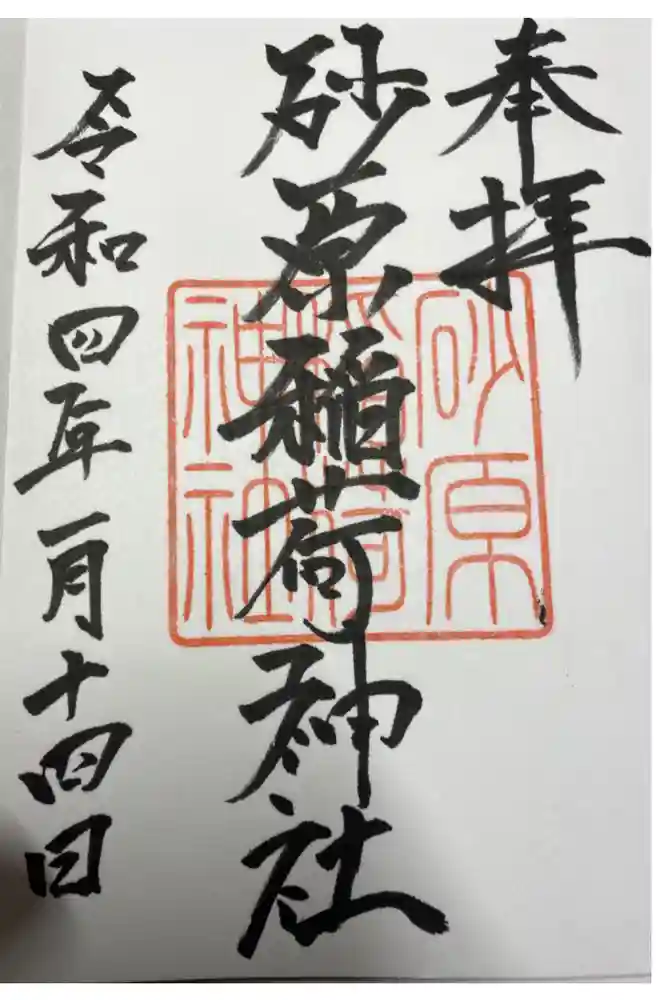 奉拝
砂原稲荷神社
砂原
稲荷
神社
令和四年一月十四日